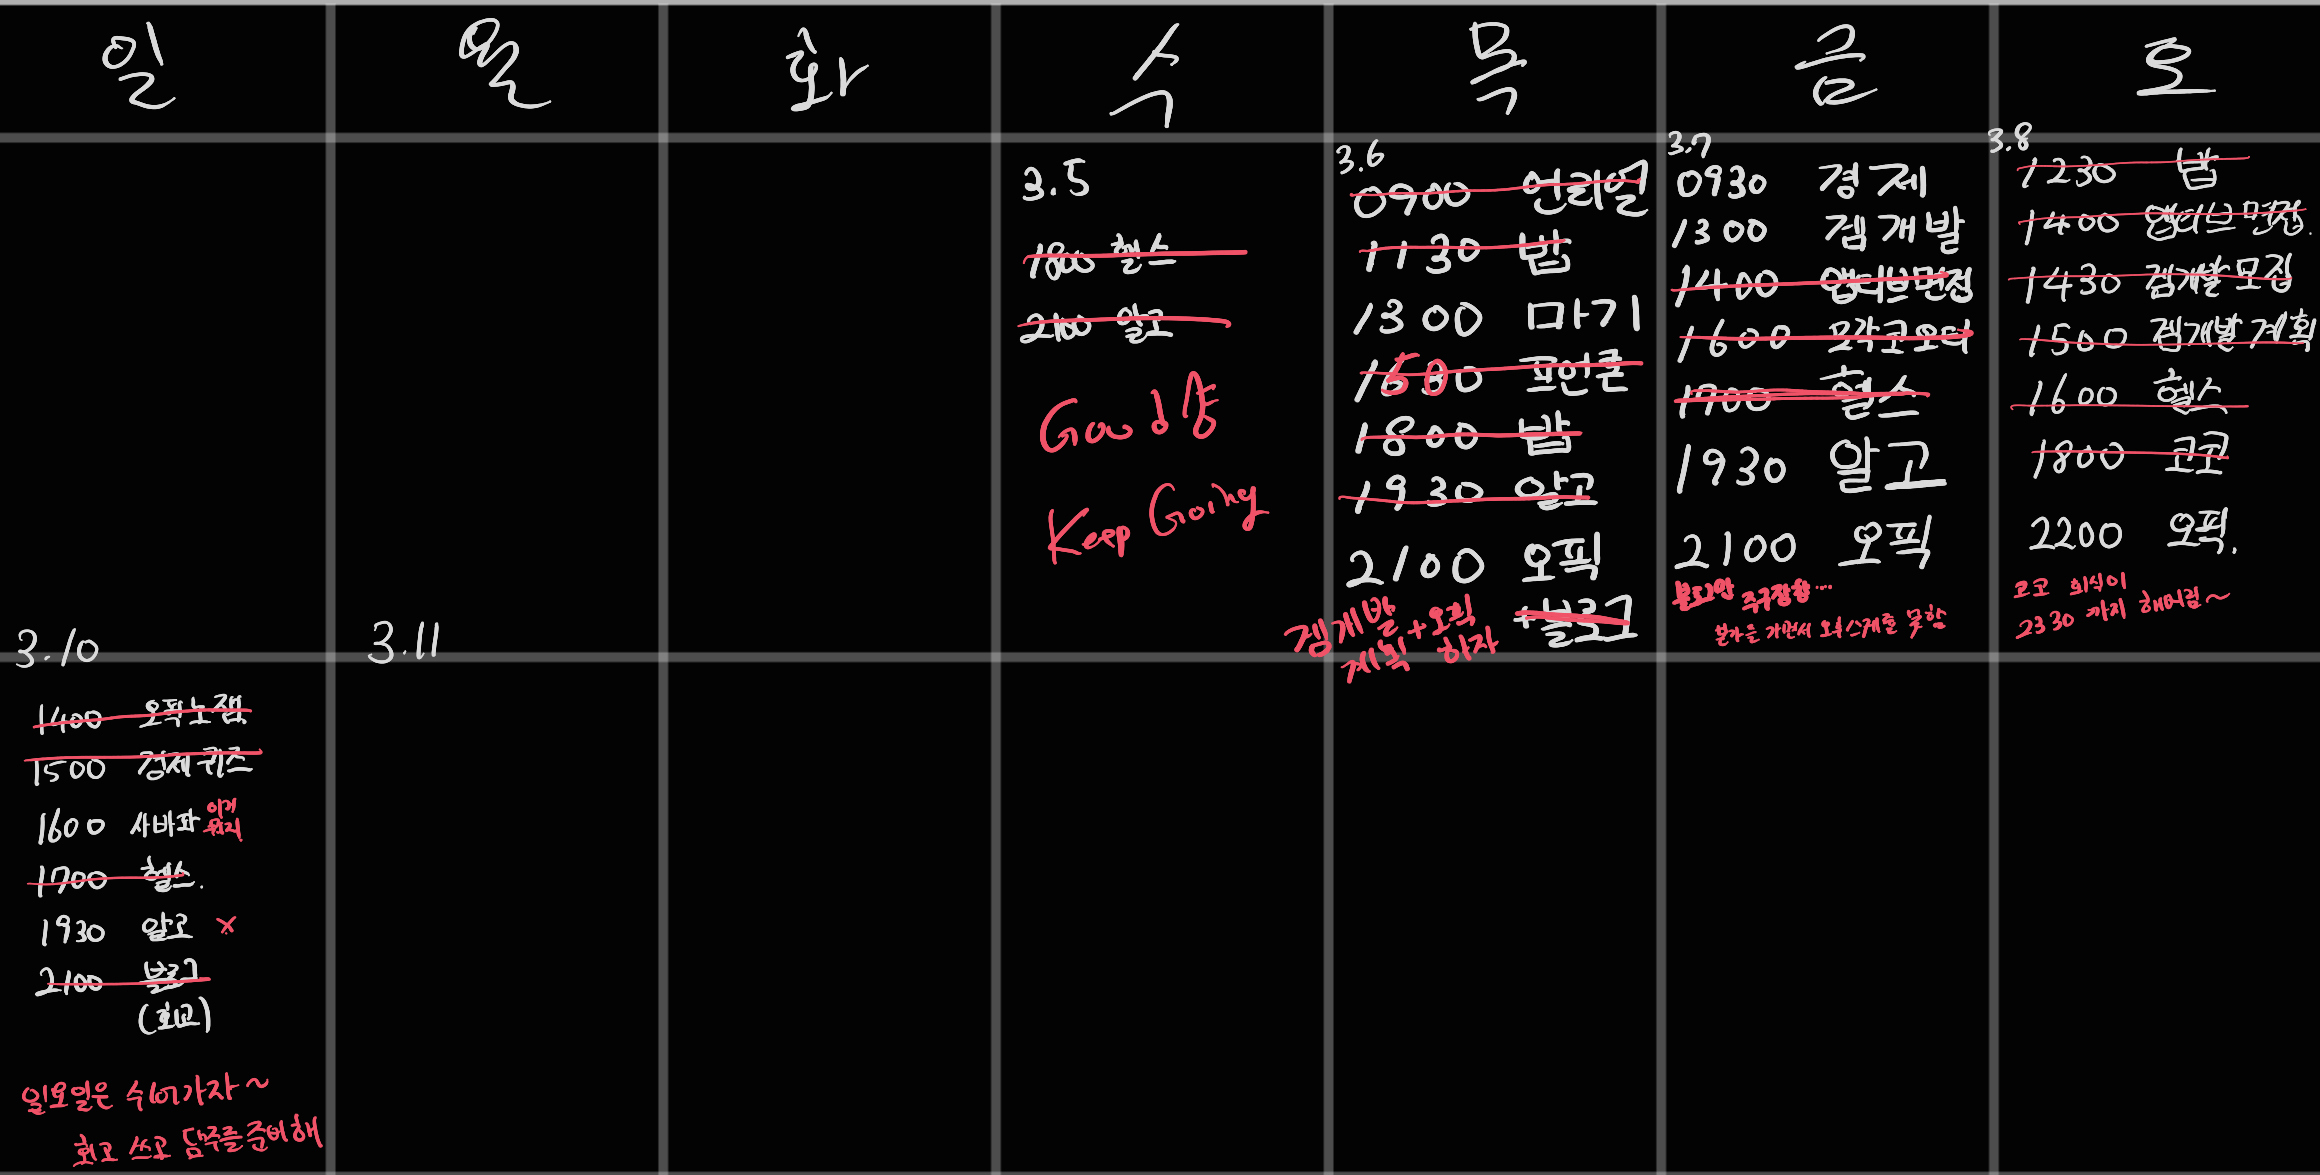 일 월 화 수 목 금 토
3.5
1800 헬스
2100 알고
Good
Keep Going
3.6
0900 언리얼
1130 밥
1300 마기
1630 프언콘
50
1800 밥
1930 알고
2100 오픽
+블로그
겜개발 +오픽
계획 하자
3.7
0930 경제
1300 겜개발
1400 앱티브면접
1600 모각코오티
1700 헬스
1930 알고
2100 오픽
주구장창...
본가를 가면서 오픽스케줄 못함
3.8
1230 밥
1400 앱티브면접.
1430 겜개발모집
1500 겜개발계획
1600 헬스
1800 코코
2200 오픽.
코코 회식이
2330 까지 해버림~
3.10
1400 오픽노잼
1500 경제퀴즈
1600 사바파 이게
뭐지
1700 헬스.
1930 알고 x
2100 블로그
(회고)
일요일은 쉬어가자~
회고 쓰고 담주를준비해
3.11